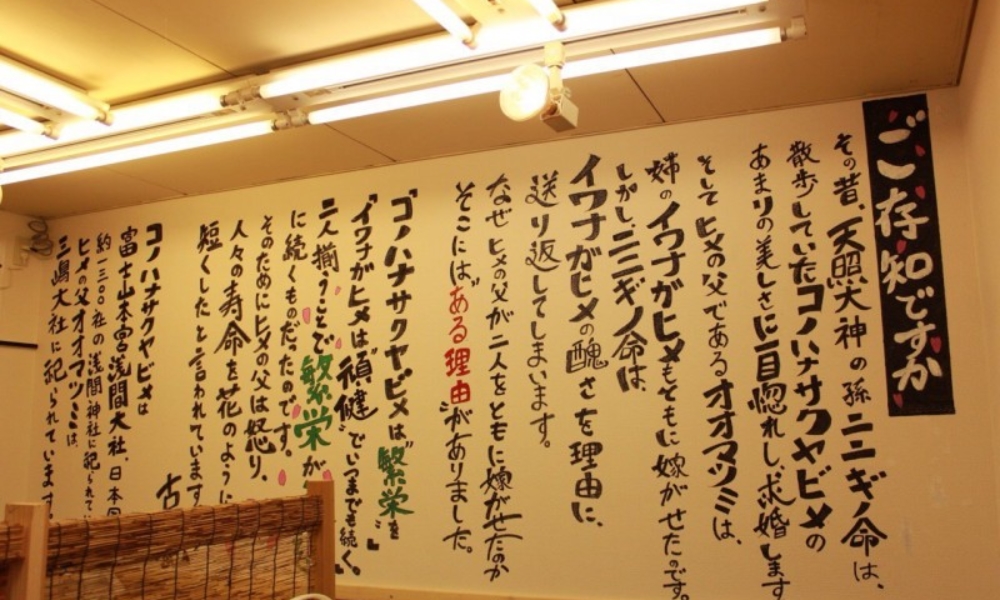 ご存知ですか
その昔、天照大神の孫ニニギノ命は、
散歩していたコノハナサクヤビメの
あまりの美しさに一目惚れし、求婚します
そしてヒメの父であるオオマツミは、
姉のイワナガヒメもともに嫁がせたのです。
しかし、ニニギノ命は、
イワナガヒメの醜さを理由に、
送り返してしまいます。
なぜヒメの父が二人をともに嫁がせたのか
そこには"ある理由"がありました。
『コノハナサクヤビメは"繁栄"を
イワナガヒメは"頑健"でいつまでも続く。』
二人揃うことで繁栄が
に続くものだったのです。
そのためにヒメの父は怒り、
人々の寿命を花のように
短くしたと言われています
古
コノハナサクヤビメは
富士山本宮浅間大社、日本
約一三〇〇在の浅間神社に祀られて
ヒメの父オオマツミは、
三嶋大社に祀られています